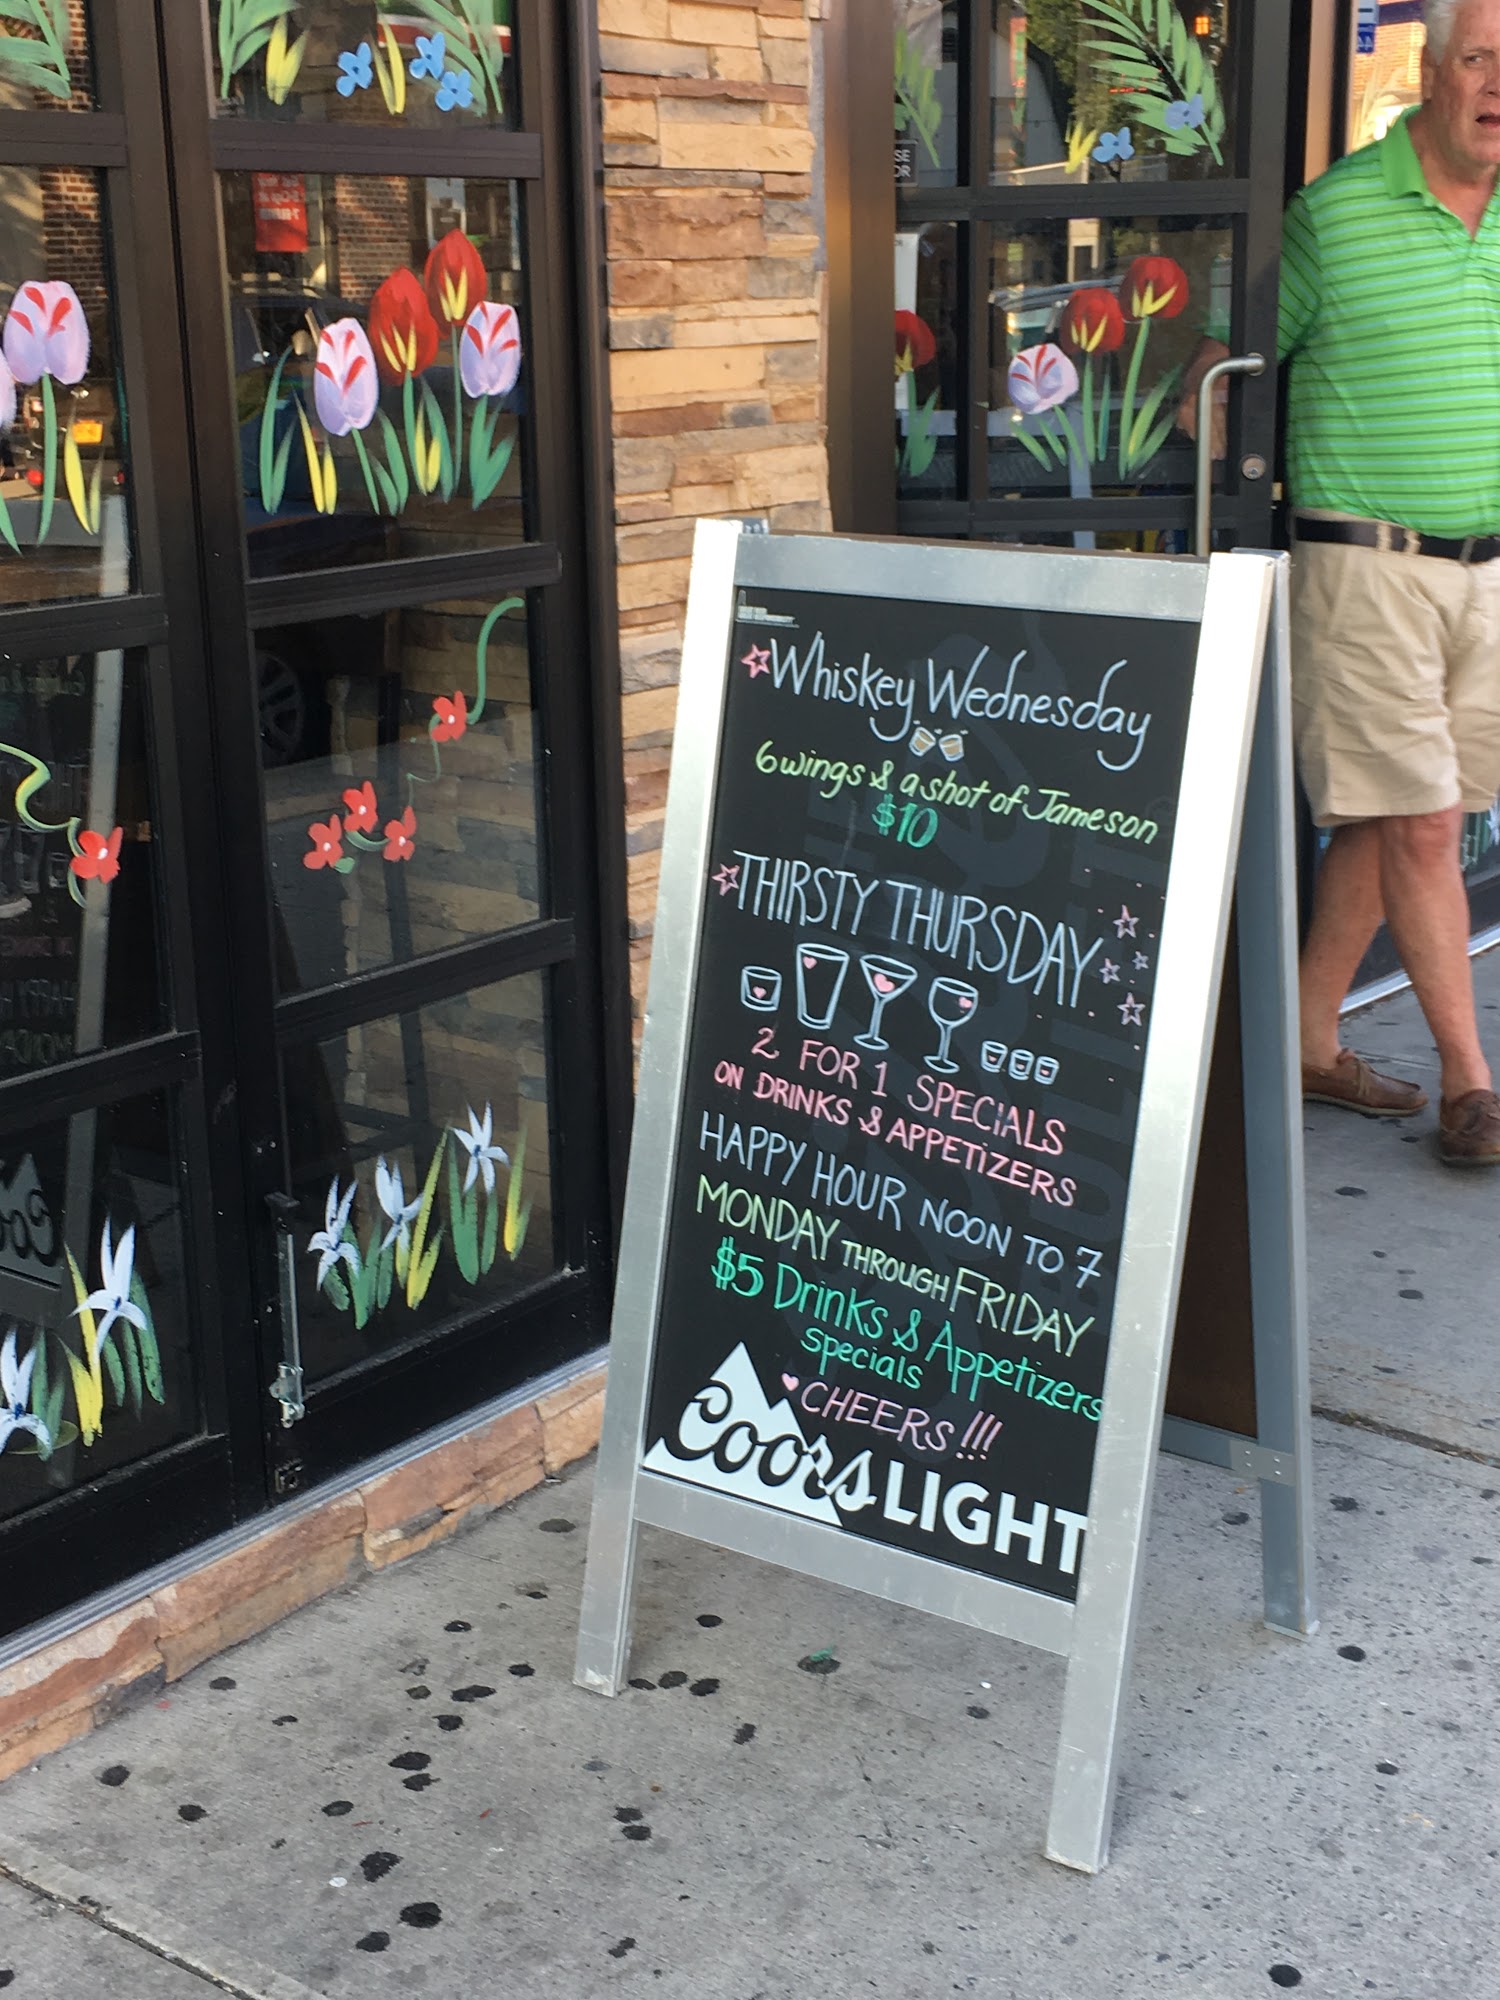 Whiskey Wednesday
6 wings & a shot of Jameson
$10
THIRSTY THURSDAY
2 FOR 1 SPECIALS
ON DRINKS & APPETiZERS
HAPPY HOUR NOON TO 7
MONDAY THROUGH FRiDAY
$5 Drinks & Appetizers
specials
CHEERS!!!
Coors LIGHT